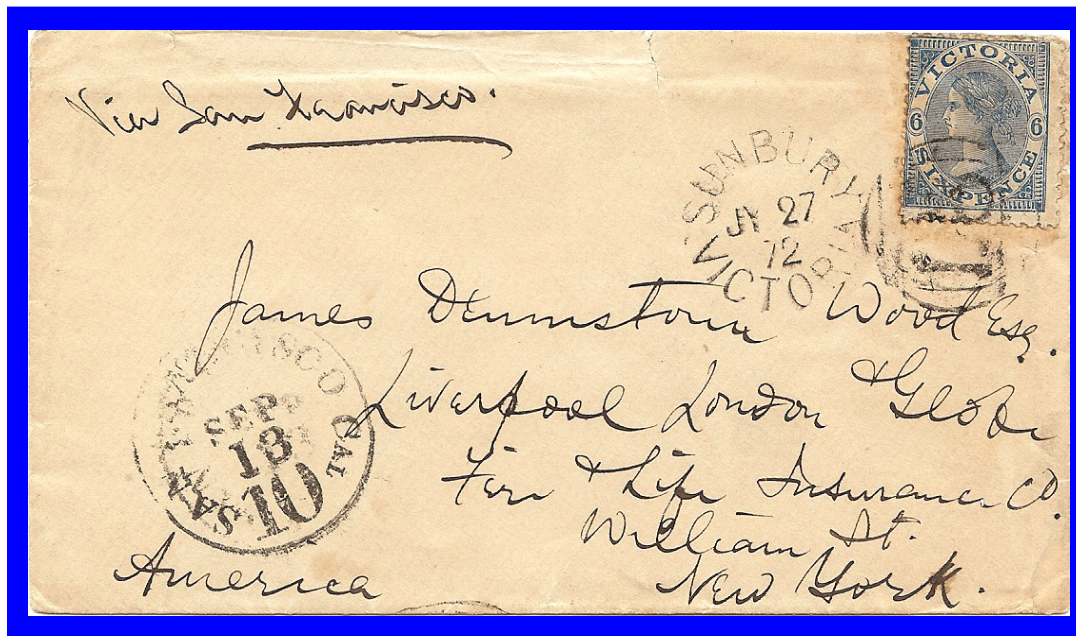 Via San Francisco.
VICTORIA
6 6
SIXPENCE
SUNBURY
JY 27
72
VICTORIA
James Wood Esq.
Liverpool London & Globe
Fire & Life Insurance Co.
William St.
New York.
America
SAN FRANCISCO CAL
SEP
13
10